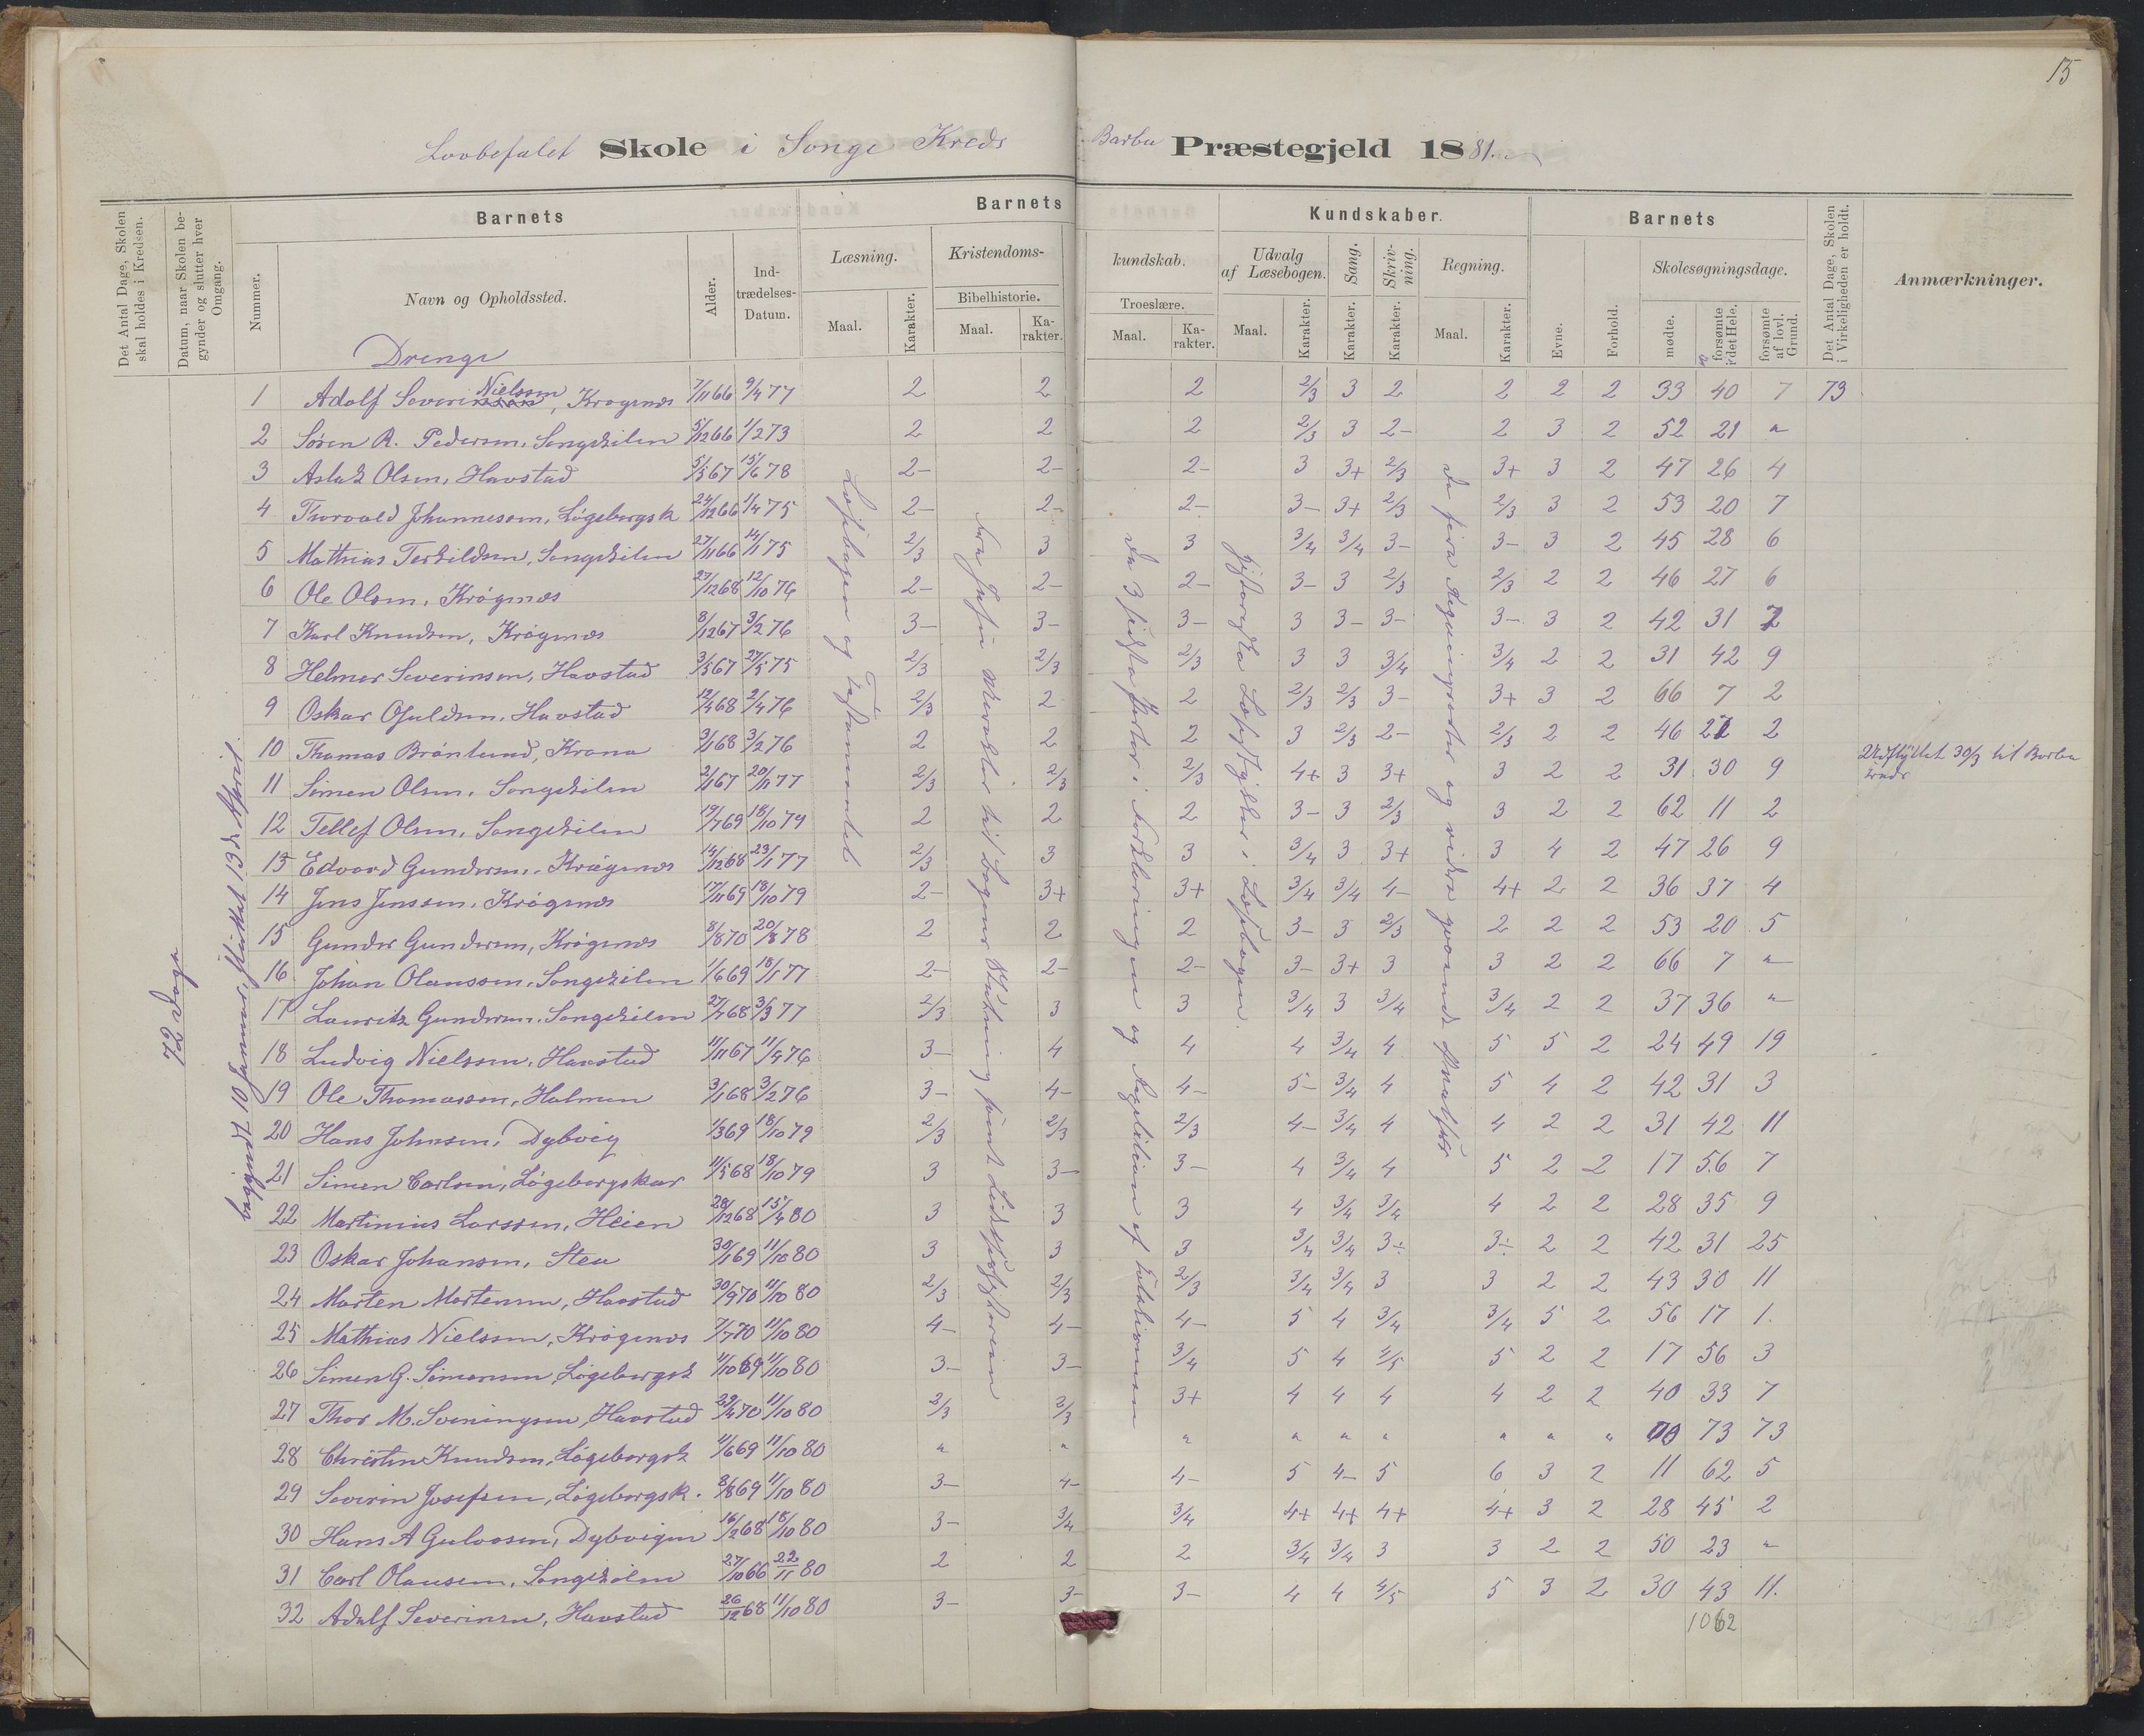 15
Lovbefalet Skole i Songe Kreds Barbu Præstegjeld 1881.
Det Antal Dage, Skolen skal holdes i Kredsen.
Datum, naar Skolen begynder og slutter hver Omgang.
Nummer.
Barnets
Navn og Opholdssted.
Alder.
Indtrædelses-Datum.
Barnets Kundskaber.
Læsning.
Maal. Karakter.
Kristendomskundskab.
Bibelhistorie.
Maal. Karakter.
Troeslære.
Maal. Karakter.
Udvalg af Læsebogen.
Maal. Karakter.
Sang.
Karakter.
Skrivning.
Karakter.
Regning.
Maal. Karakter.
Barnets
Evne. Forhold.
Skolesøgningsdage.
mødte. forsømte i det Hele. forsømte af lovl. Grund.
Det Antal Dage, Skolen i Virkeligheden er holdt.
Anmærkninger.
72 Dage
begyndt 10 Januar, sluttet 13de April
Læsebogen og Testamentet
Fra Jesu Mirakler til Bogens Slutning samt Lidelseshistorien
De 3 sidste Parter i Forklaringen og
historiske Læsestykker i Læsebogen.
De fire Regningsarter og videre
Drenge
1 Adolf Severinsen Nielssen, Krøgenæs 7/11 66 9/4 77 2 2 2 2/3 3 2 2 2 2 33 40 7 73
2 Søren A. Pedersen, Songekilen 5/12 66 1/2 73 2 2 2 2/3 3 2- 2 3 2 52 21 "
3 Aslak Olsen, Havstad 5/5 67 15/6 78 2- 2- 2- 3 3+ 2/3 3+ 3 2 47 26 4
4 Thorvald Johannessen, Løgebergsk 24/12 66 1/4 75 2- 2- 2- 3- 3+ 2/3 2/3 3 2 53 20 7
5 Mathias Terkildsen, Songekilen 27/11 66 14/1 75 2/3 3 3 3/4 3/4 3- 3- 3 2 45 28 6
6 Ole Olsen, Krøgenæs 27/12 68 12/10 76 2- 2- 2- 3- 3 2/3 2/3 2 2 46 27 6
7 Karl Knudsen, Krøgenæs 8/12 67 3/2 76 3- 3- 3- 3 3- 3- 3- 3 2 42 31 2
8 Helmer Severinsen, Havstad 3/5 67 27/5 75 2/3 2/3 2/3 3 3 3/4 3/4 2 2 31 42 9
9 Oskar Osuldsen, Havstad 12/4 68 2/4 76 2/3 2 2 2/3 2/3 3- 3+ 3 2 66 7 2
10 Thomas Brønlund, Krana 3/1 68 3/2 76 2 2 2 3 2/3 2- 2/3 2 2 46 27 2
11 Simen Olsen, Songekilen 2/1 67 20/11 77 2/3 2/3 2/3 4+ 3 3+ 3 2 2 31 30 9 Udflyttet 30/3 til Barbu Kreds
12 Tellef Olsen, Songekilen 19/7 69 18/10 79 2 2 2 3- 3 2/3 3 2 2 62 11 2
13 Edvard Gundersen, Krøgenæs 14/12 68 23/1 77 2/3 3 3 3/4 3 3+ 3 4 2 47 26 9
14 Jens Jenssen, Krøgenæs 17/11 69 18/10 79 2- 3+ 3+ 3/4 3/4 4- 4+ 2 2 36 37 4
15 Gunder Gundersen, Krøgenæs 8/8 70 20/8 78 2 2 2 3- 3 2/3 2 2 2 53 20 5
16 Johan Olaussen, Songekilen 1/6 69 18/1 77 2- 2- 2- 3- 3+ 3 3 2 2 66 7 "
17 Lauritz Gundersen, Songekilen 27/7 68 3/3 77 2/3 3 3 3/4 3 3/4 3/4 2 2 37 36 "
18 Ludvig Nielssen, Havstad 11/11 67 11/4 76 3- 4 4 4 3/4 4 5 5 2 24 49 19
19 Ole Thomassen, Holmen 3/1 68 3/2 76 3- 4- 4- 5- 3/4 4 5 4 2 42 31 3
20 Hans Johnsen, Dybvig 1/3 69 18/10 79 2/3 2/3 2/3 4- 3/4 4 4 2 2 31 42 11
21 Simen Carlsen, Løgebergskar 11/5 68 18/10 79 3 3- 3- 4 3/4 4 5 2 2 17 56 7
22 Martinius Larssen, Heien 28/12 68 15/4 80 3 3 3 4 3/4 3/4 4 2 2 28 35 9
23 Oskar Johansen, Stea 30/1 69 11/10 80 3 3 3 3/4 3/4 3÷ 3÷ 2 2 42 31 25
24 Morten Mortensen, Havstad 30/9 70 11/10 80 2/3 2/3 2/3 3/4 3/4 3 3 2 2 43 30 11
25 Mathias Nielssen, Krøgenæs 7/7 70 11/10 80 4- 4- 4- 5 4 3/4 3/4 5 2 56 17 1.
26 Simen G. Simonsen, Løgebergsk 11/10 69 11/10 80 3- 3- 3/4 5 4 4/5 5 2 2 17 56 3
27 Thor M. Sveningsen, Havstad 29/4 70 11/10 80 2/3 2/3 3+ 4 4 4 4 2 2 40 33 7
28 Christen Knudsen, Løgebergsk 11/6 69 11/10 80 " " " " " " " " " 73 73
29 Severin Josefsen, Løgebergsk. 8/8 69 11/10 80 3- 4- 4- 5 4- 5 6 3 2 11 62 5
30 Hans A Gulovsen, Dybvigen 16/2 68 18/10 80 3- 3/4 3/4 4+ 4+ 4+ 4+ 3 2 28 45 2
31 Carl Olausen, Songekilen 27/10 66 22/11 80 2 2 2 3/4 3/4 3 3 2 2 50 23 "
32 Adolf Severinsen, Havstad 26/12 68 11/10 80 3- 3- 3- 4 4 4/5 5 3 2 30 43 11.
1062